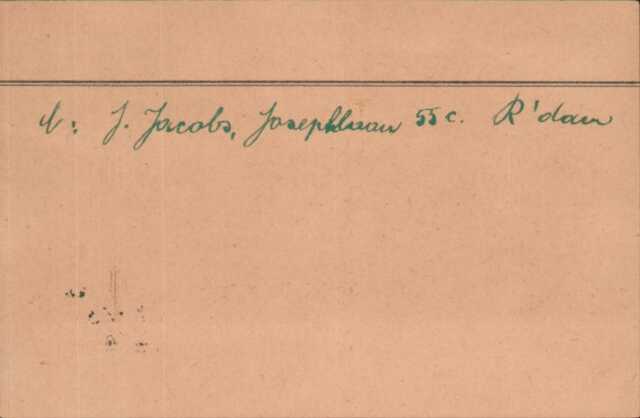 v: J. Jacobs, Josephlaan 55c. R'dam